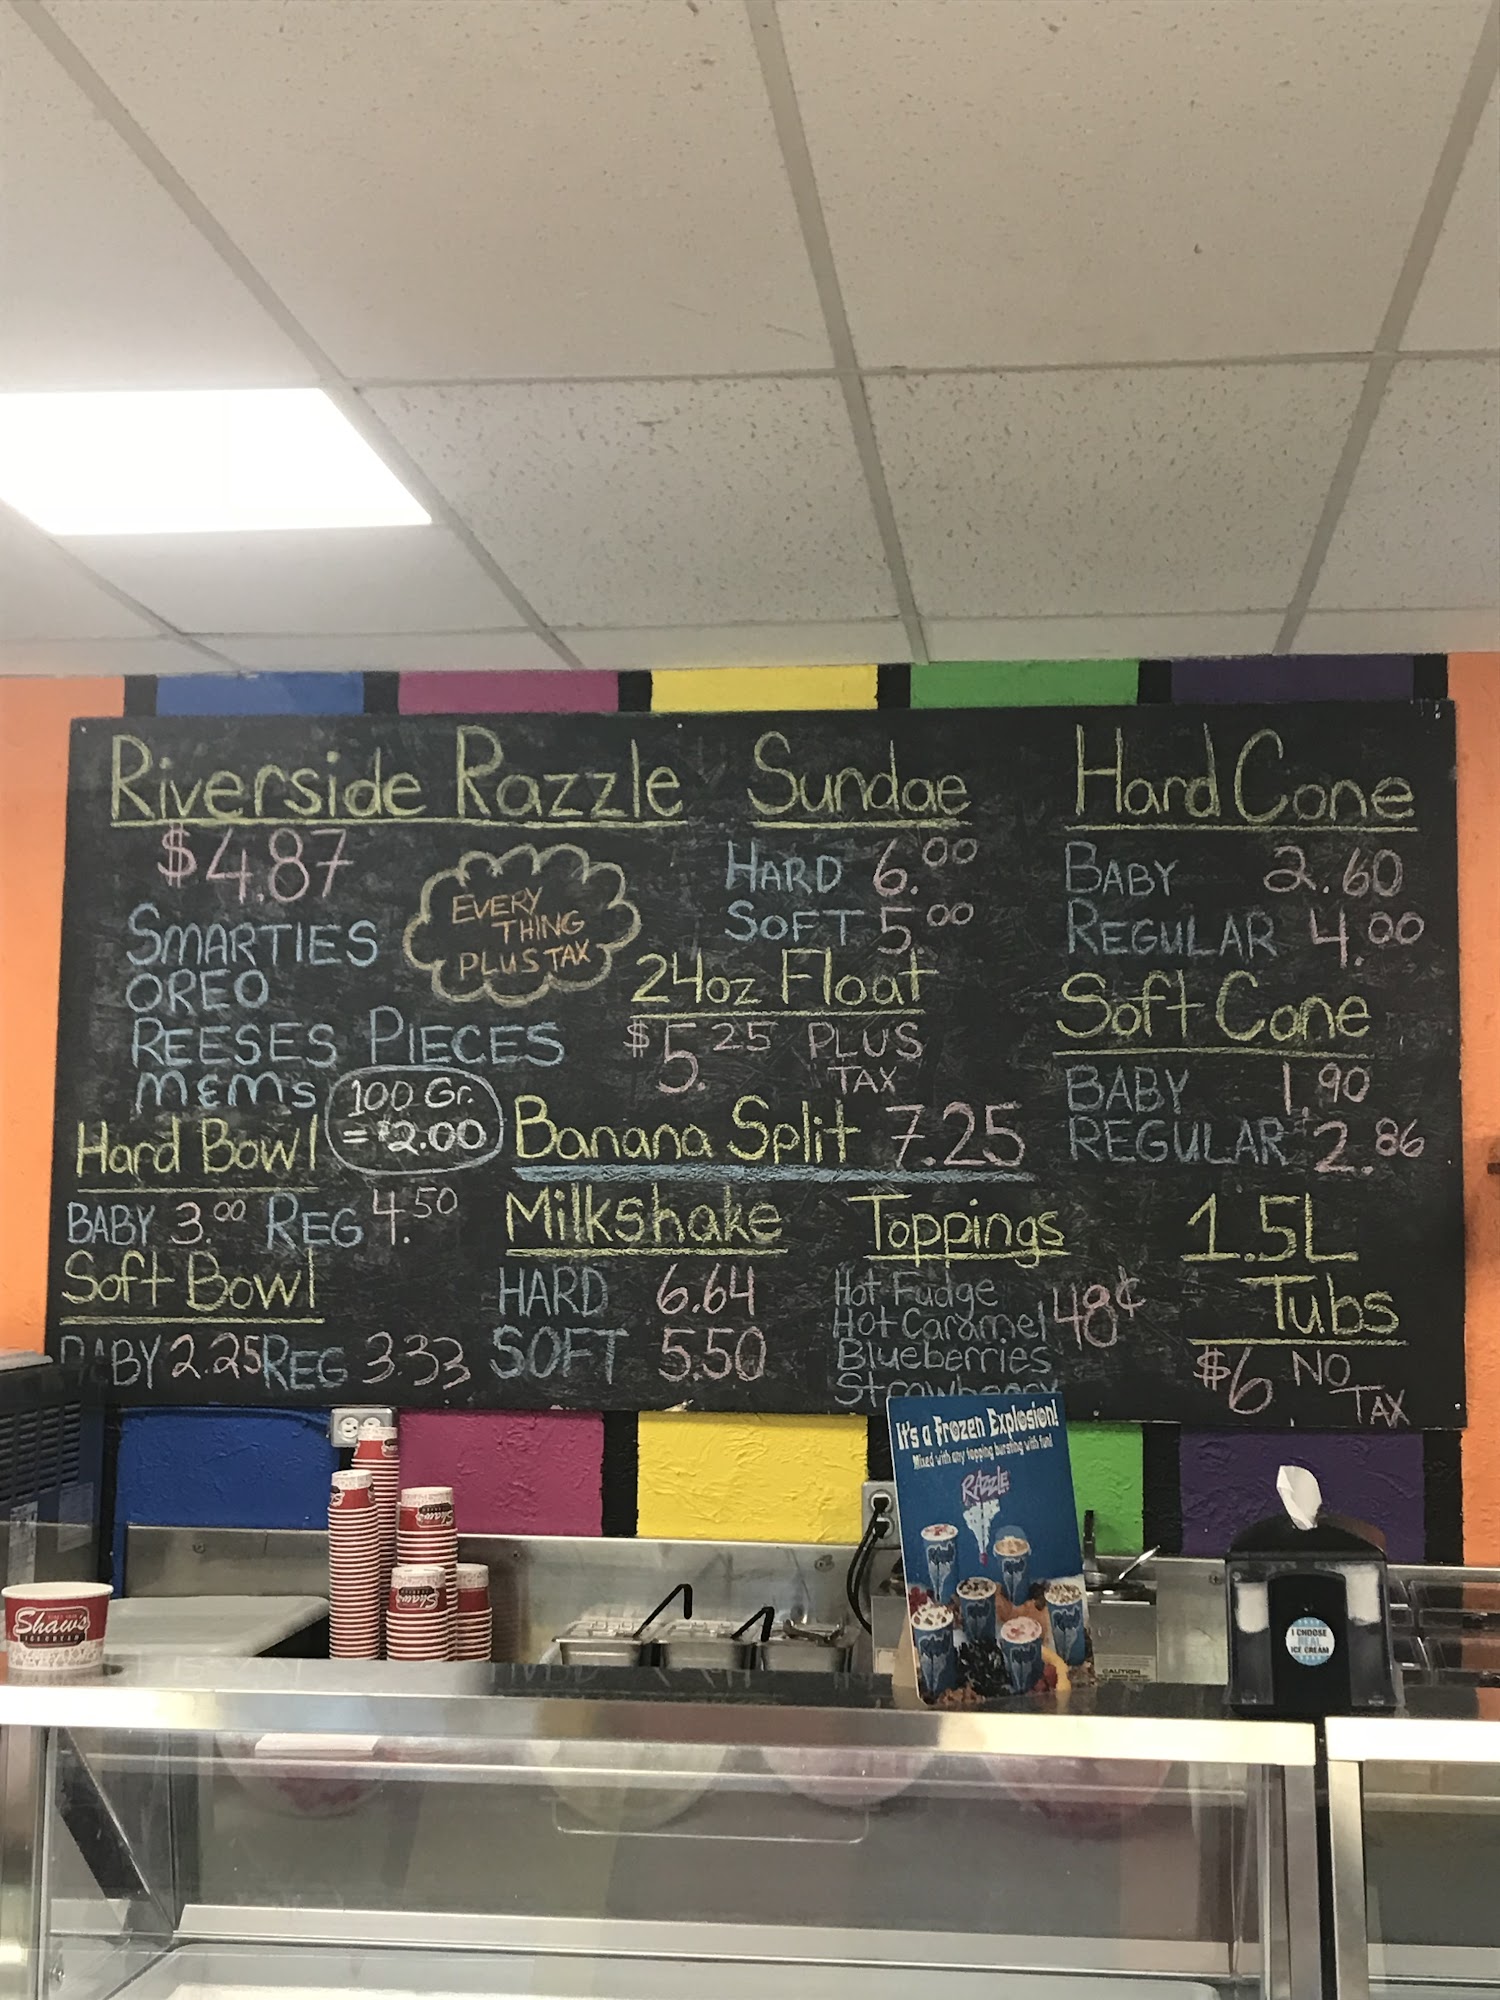 Riverside Razzle
$4.87
SMARTIES
OREO
REESES PIECES
M&Ms
EVERY
THING
PLUS TAX
100 Gr.
= $2.00
Hard Bowl
BABY 3.00 REG 4.50
Soft Bowl
BABY 2.25 REG 3.33
Sundae
HARD 6.00
SOFT 5.00
24oz Float
$5.25 PLUS
TAX
Banana Split 7.25
Milkshake
HARD 6.64
SOFT 5.50
Toppings
Hot Fudge
Hot Caramel 48¢
Blueberries
Strawberry
Hard Cone
BABY 2.60
REGULAR 4.00
Soft Cone
BABY 1.90
REGULAR 2.86
1.5L
Tubs
$6 NO
TAX
It's a Frozen Explosion!
Mixed with any topping bursting with fun!
RAZZLE
Shaw's
ICE CREAM
Shaw's
Shaw's
I CHOOSE
REAL
ICE CREAM
CAUTION